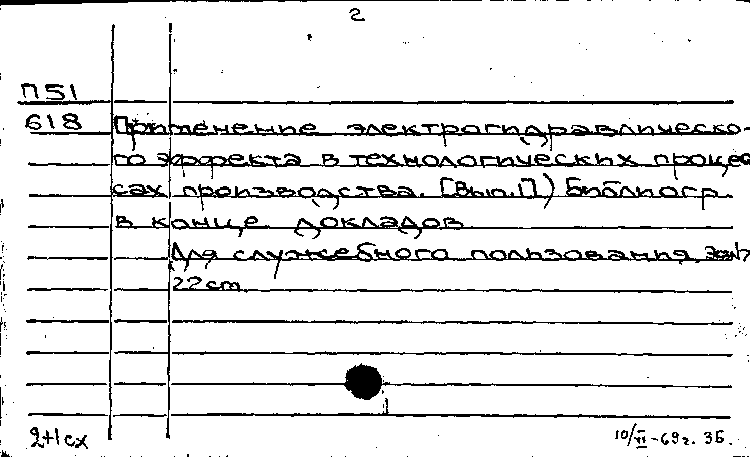 2
П51
618 Применение электрогидравлическо-
го эффекта в технологических процес
сах производства. [Вып. П) Библиогр
в конце докладов
Для служебного пользования
22 cm
2+1 сх 10/VI-69г. ЗБ.